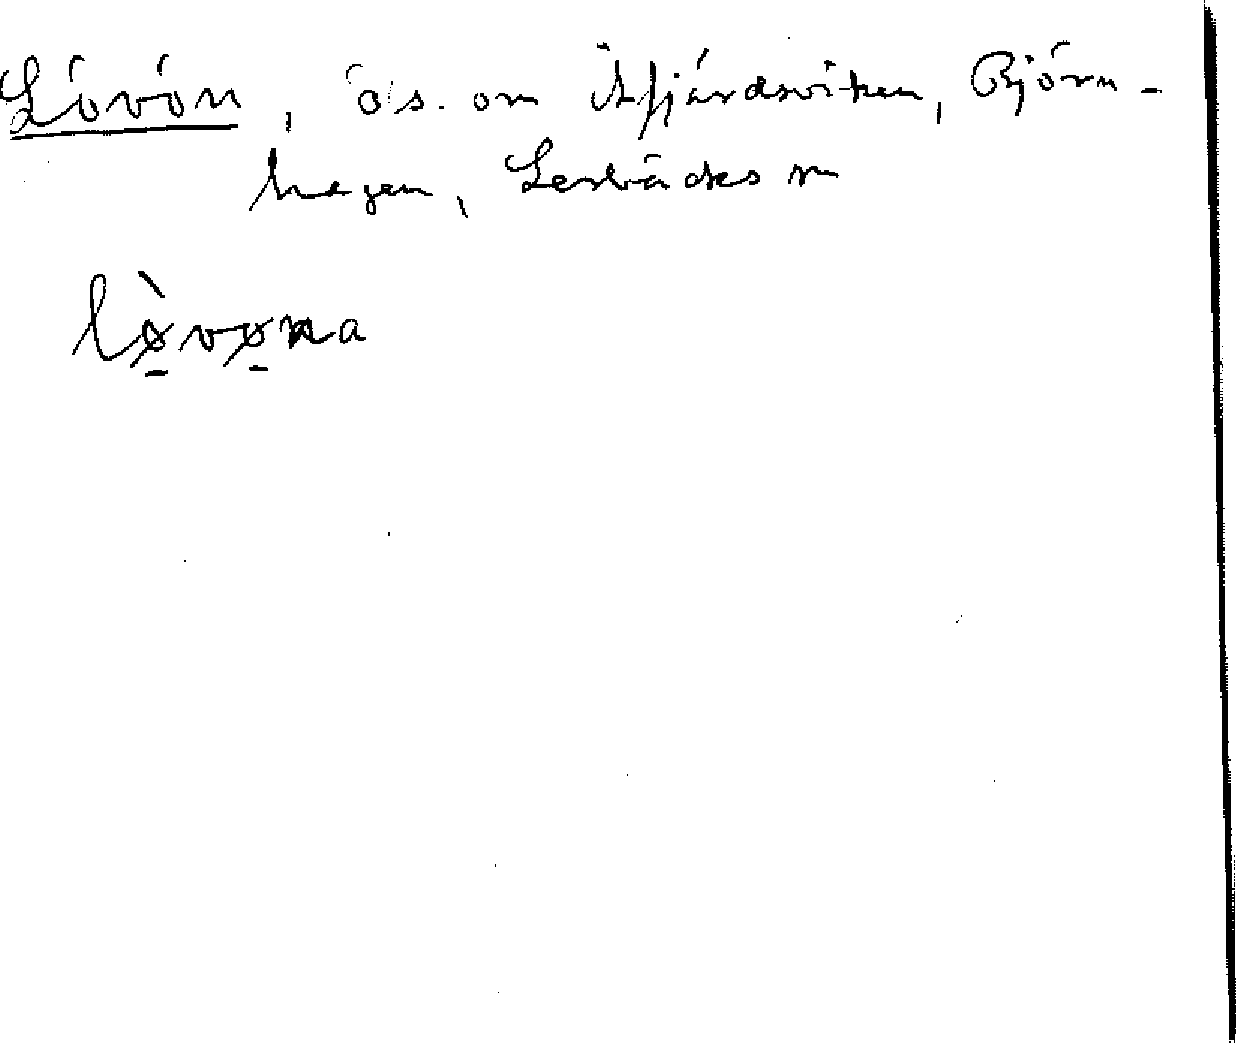 Lövön, ö s. om Åfjärdsviken, Björn-
hagen, Lerbäcks sn
lø̱̀vø̱na